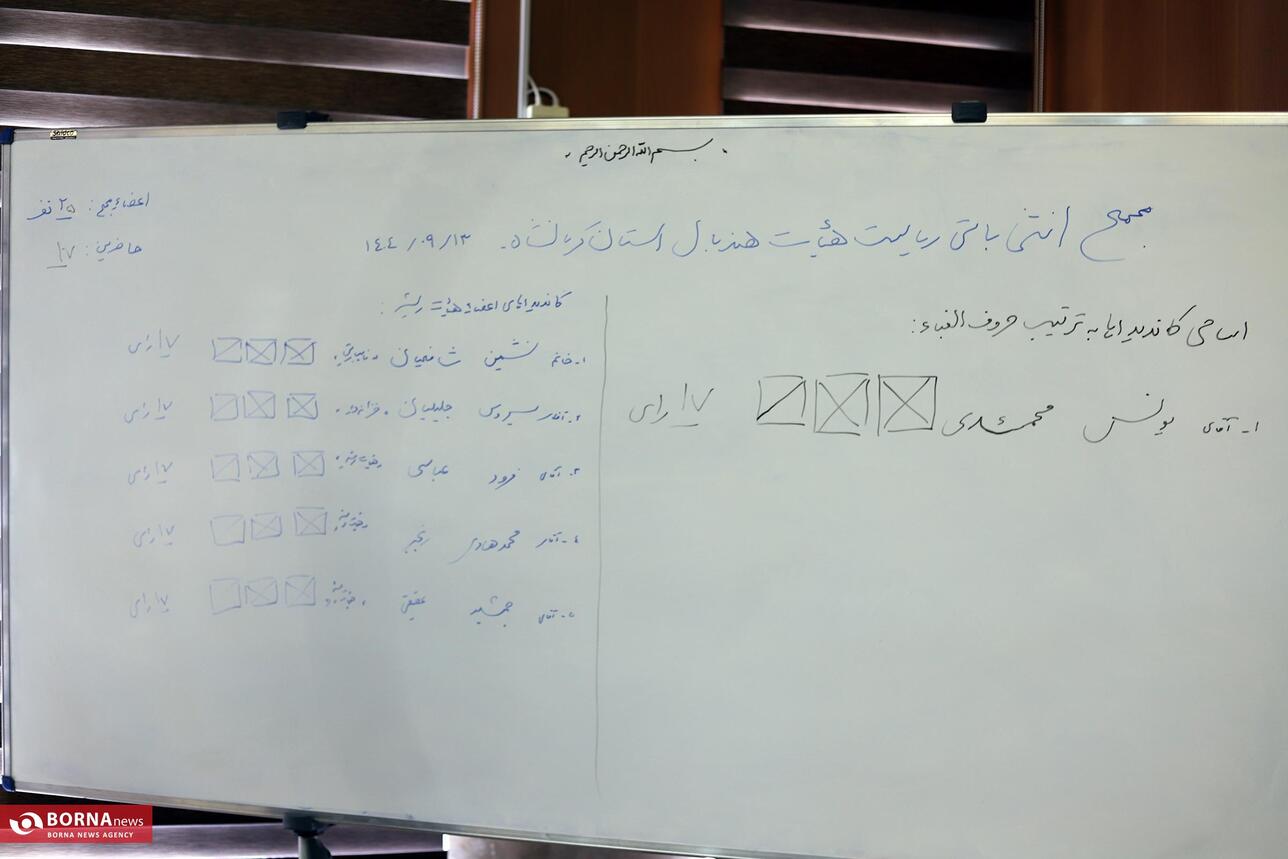 بسم الله الرحمن الرحیم
مجمع انتخاباتی ریاست هیأت هندبال استان کرمانشاه. ۱۴۰۴/۰۹/۱۳
اعضاء مجمع: ۲۵ نفر
حاضرین: ۱۷
اسامی کاندیداها به ترتیب حروف الفباء:
۱- آقای یونس محمدی ۱۷ رای
کاندیداهای اعضاء هیأت رئیسه:
۱- خانم نشمین شافعیان ۱۷ رای
۲- آقای سیروس جلیلیان ۱۷ رای
۳- آقای فرود عباسی ۱۷ رای
۴- آقای محمدهادی رنجبر ۱۷ رای
۵- آقای جمشید عقیقی ۱۷ رای
BORNAnews
BORNA NEWS AGENCY